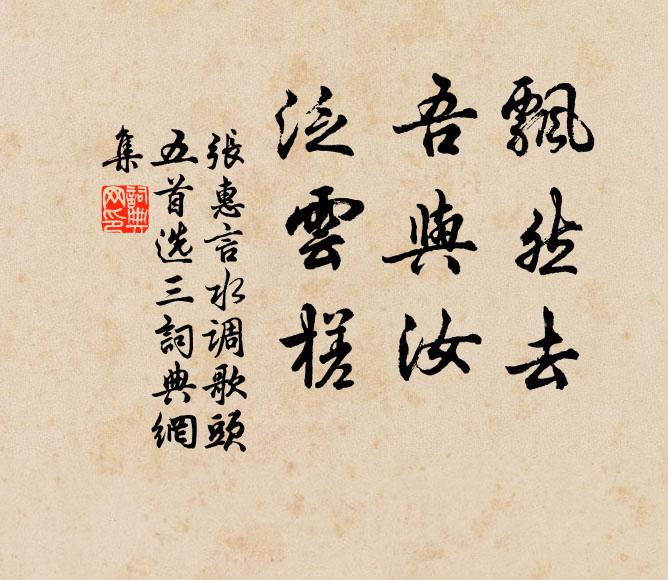 飄然去
吾與汝
泛雲槎
張惠言水调歌頭
五首选三詞典網
集
詞典网印